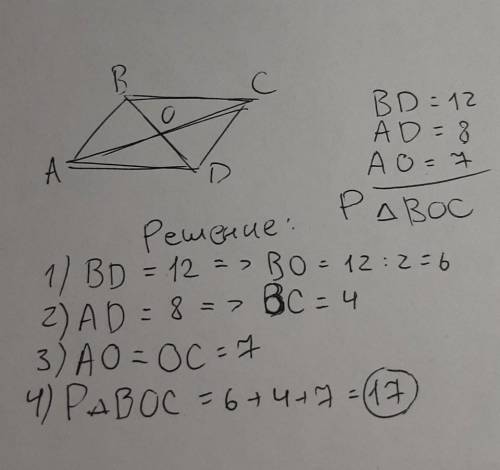 B
C
O
A
D
BD = 12
AD = 8
AO = 7
P △BOC
Решение:
1) BD = 12 => BO = 12 : 2 = 6
2) AD = 8 => BC = 4
3) AO = OC = 7
4) P△BOC = 6+4+7 = 17